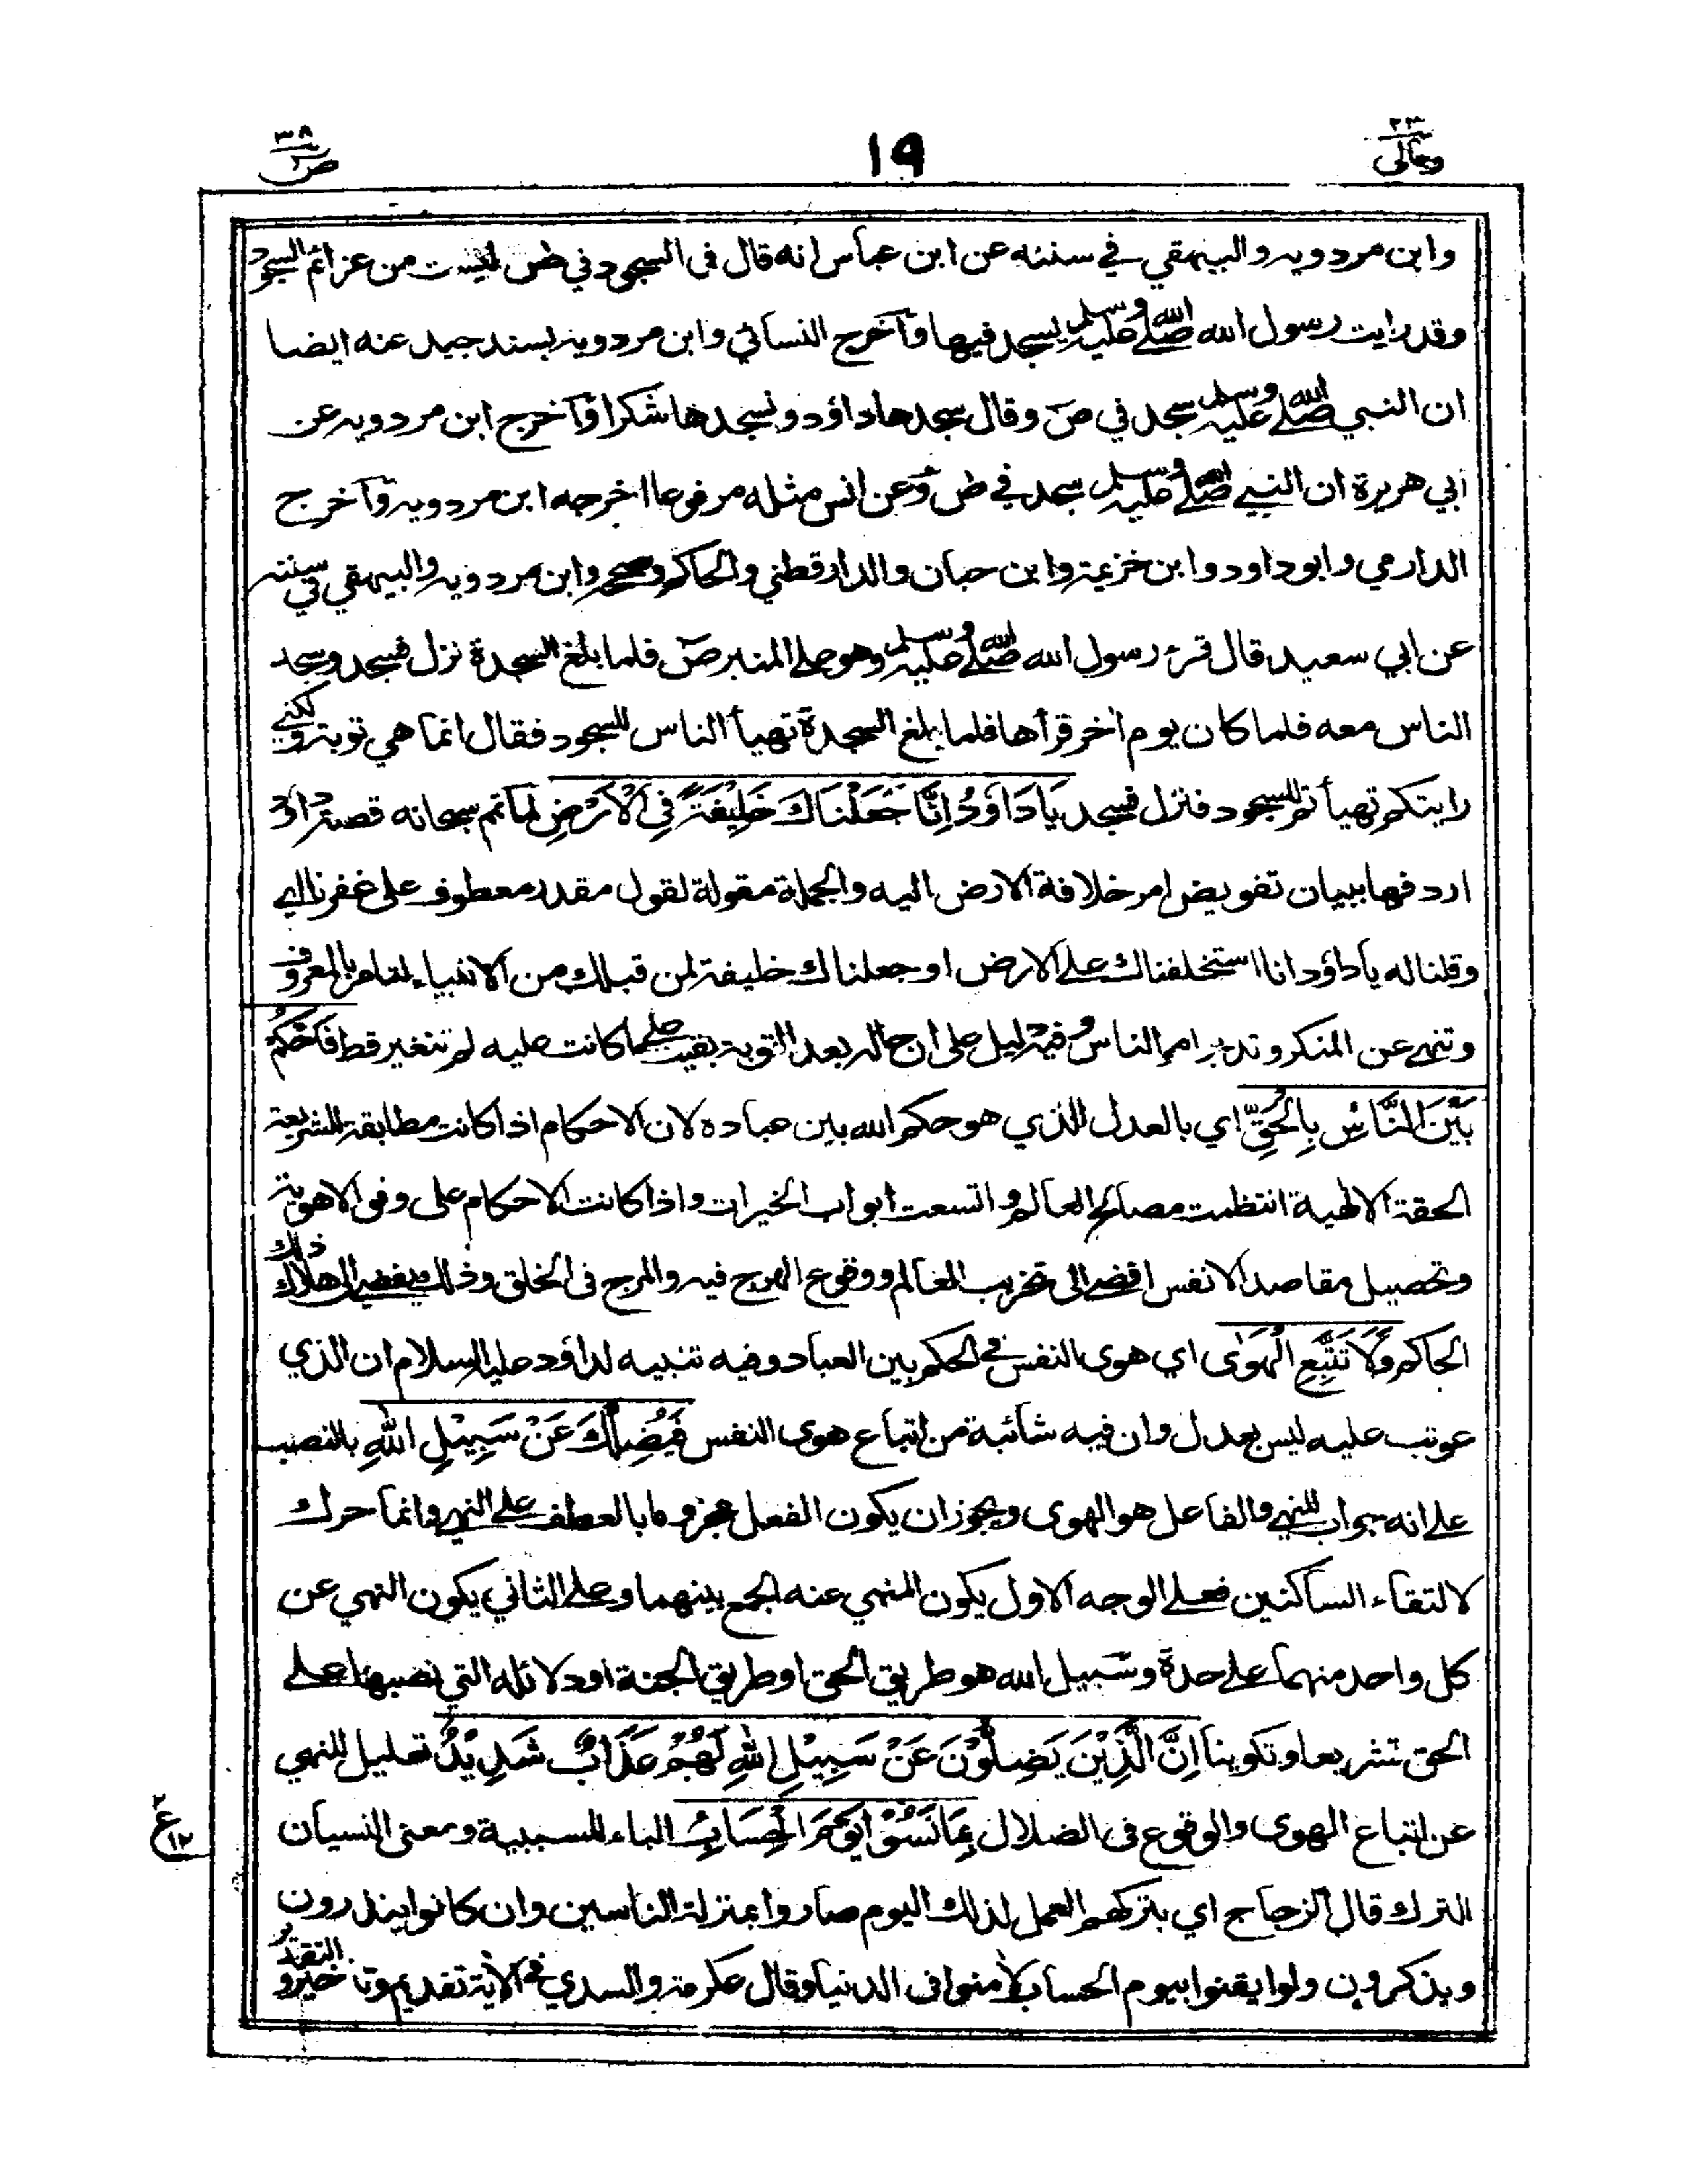 ومالى ٢٣
١٩
ص ٣٨
وابن مردويه والبيهقي في سننه عن ابن عباس انه قال فى السجود في ص ليست من عزائم السجود
وقد رايت رسول الله صلى الله عليه وسلم يسجد فيها وآخرج النسائي وابن مردويه بسند جيد عنه ايضا
ان النبي صلى الله عليه وسلم سجد في ص وقال سجدها داؤد ونسجدها شكرا وآخرج ابن مردويه عن
ابي هريرة ان النبي صلى الله عليه وسلم سجد في ص وعن انس مثله مرفوعا اخرجه ابن مردويه وآخرج
الدارمي وابو داود وابن خزيمة وابن حبان والدارقطني والحاكم وصححه وابن مردويه والبيهقي في سننه
عن ابي سعيد قال قرء رسول الله صلى الله عليه وسلم وهو على المنبر ص فلما بلغ السجدة نزل فسجد وسجد
الناس معه فلما كان يوم اٰخر قرأها فلما بلغ السجدة تهيأ الناس للسجود فقال انما هي توبة ولكني
رايتكم تهيأتم للسجود فنزل فسجد يَادَاوٗدُ اِنَّا جَعَلْنَاكَ خَلِيْفَةً فِى الْاَرْضِ لما تم سبحانه قصة داؤد
اردفها ببيان تفويض امر خلافة الارض اليه والجملة مقولة لقول مقدر معطوف على غفرنا اي
وقلنا له ياداؤد انا استخلفناك على الارض او جعلناك خليفة لمن قبلك من الانبياء لتامر بالمعروف
وتنهى عن المنكر وتدبر امر الناس وفيه دليل على ان حاله بعد التوبة بقيت على ما كانت عليه لم تتغير قط فَاحْكُمْ
بَيْنَ النَّاسِ بِالْحَقِّ اي بالعدل الذي هو حكم الله بين عباده لان الاحكام اذا كانت مطابقة للشريعة
الحقة الالهية انتظمت مصالح العالم واتسعت ابواب الخيرات واذا كانت الاحكام على وفق الاهوية
وتحصيل مقاصد الانفس افضى الى تخريب العالم ووقوع الهرج فيه والمرج فى الخلق وذلك يفضي الى هلاك ذلك
الحاكم وَلَا تَتَّبِعِ الْهَوٰى اي هوى النفس في الحكم بين العباد وفيه تنبيه لداؤد عليه السلام ان الذي
عوتب عليه ليس بعدل وان فيه شائبة من اتباع هوى النفس فَيُضِلَّكَ عَنْ سَبِيْلِ اللّٰهِ بالنصب
على انه جواب للنهي والفاعل هو الهوى ويجوز ان يكون الفعل مجزوما بالعطف على النهي وانما حرك
لالتقاء الساكنين فعلى الوجه الاول يكون المنهي عنه الجمع بينهما وعلى الثاني يكون النهي عن
كل واحد منهما على حدة وسبيل الله هو طريق الحق او طريق الجنة او دلائله التي نصبها على
الحق تشريعا وتكوينا اِنَّ الَّذِيْنَ يَضِلُّوْنَ عَنْ سَبِيْلِ اللّٰهِ لَهُمْ عَذَابٌ شَدِيْدٌ تعليل للنهي
عن اتباع الهوى والوقوع فى الضلال بِمَا نَسُوْا يَوْمَ الْحِسَابِ الباء للسببية ومعنى النسيان
ع ٢ ١٢
الترك قال الزجاج اي بتركهم العمل لذلك اليوم صاروا بمنزلة الناسين وان كانوا ينذرون
ويذكرون ولو ايقنوا بيوم الحساب لاٰمنوا فى الدنيا وقال عكرمة والسدي في الاٰية تقديم وتاخير والتقدير